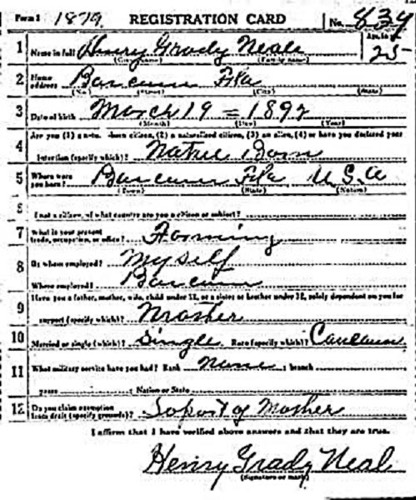 Form 1 1879 REGISTRATION CARD No. 839
1 Name in full Henry Grady Neal Age, in yrs. 25
(Given name) (Family name)
2 Home address Barcum Fla
(No.) (Street) (City) (State)
3 Date of birth March 19 = 1892
(Month) (Day) (Year)
Are you (1) a natural-born citizen, (2) a naturalized citizen, (3) an alien, (4) or have you declared your
4 intention (specify which)? Natul Born
5 Where were you born? Barcum Fla U.S.A
(Town) (State) (Nation)
6 If not a citizen, of what country are you a citizen or subject?
7 What is your present trade, occupation, or office? Farming
8 By whom employed? Myself
Where employed? Barcum
Have you a father, mother, wife, child under 12, or a sister or brother under 12, solely dependent on you for
9 support (specify which)? Mother
10 Married or single (which)? Single Race (specify which)? Caucasian
11 What military service have you had? Rank None ; branch
years ; Nation or State
12 Do you claim exemption from draft (specify grounds)? Suport of Mother
I affirm that I have verified above answers and that they are true.
Henry Grady Neal
(Signature or mark)